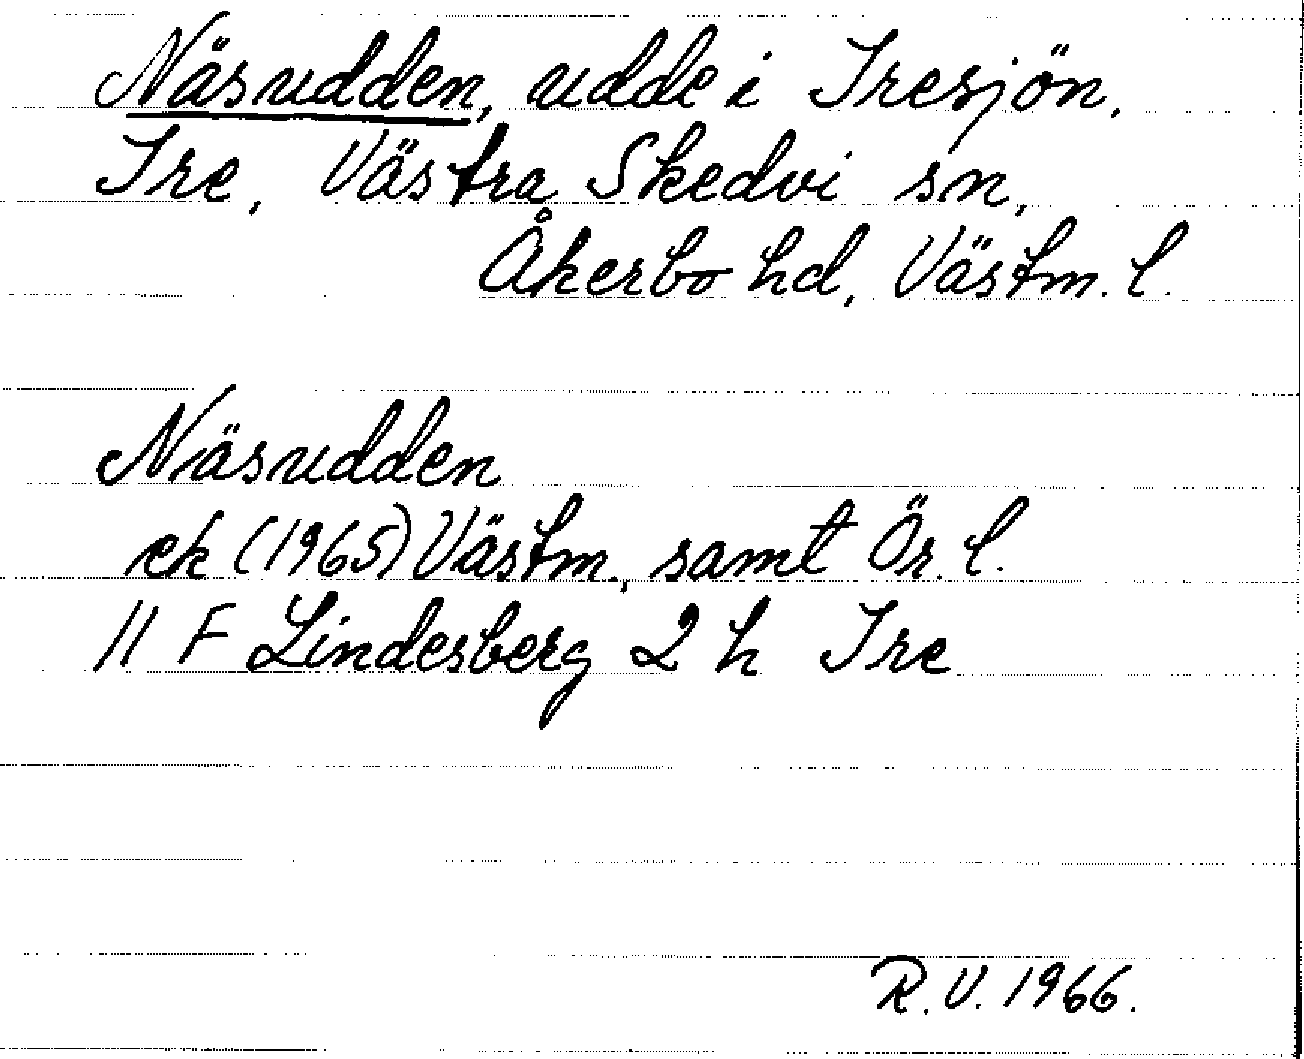 Näsudden, udde i Iresjön,
Ire, Västra Skedvi sn,
Åkerbo hd, Västm. l.
Näsudden
ek (1965) Västm., samt Ör. l.
11 F Lindesberg 2 h Ire
R.V. 1966.